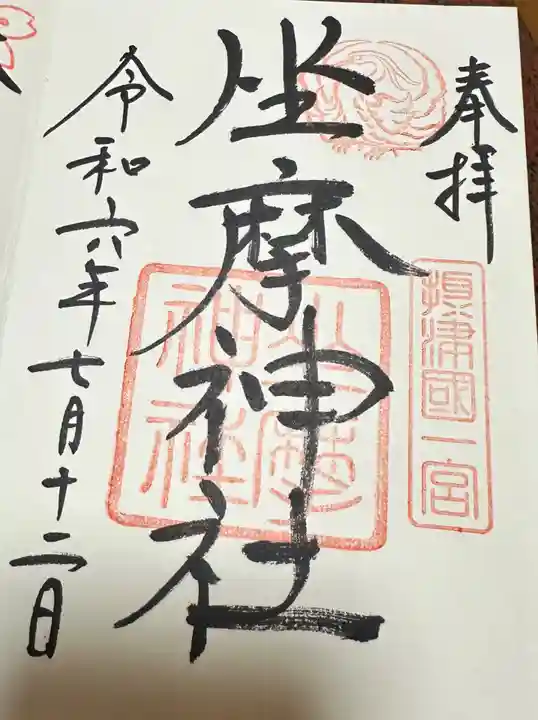 奉拝
摂津國一宮
坐摩神社
坐摩神社
令和六年七月十二日